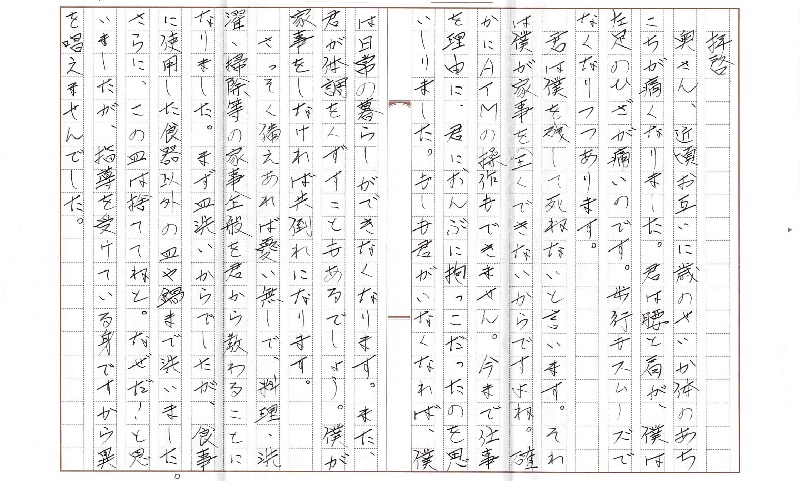 拝啓
奥さん、近頃お互いに歳のせいか体のあち
こちが痛くなりました。君は腰と肩が、僕は
左足のひざが痛いのです。歩行もスムーズで
なくなりつつあります。
君は僕を残して死ねないと言います。それ
は僕が家事を全くできないからですよね。確
かにAIMの操作もできません。今まで仕事
を理由に、君におんぶに抱っこだったのを思
いしりました。もしも君がいなくなれば、僕
は日常の暮らしができなくなります。また、
君が体調をくずすこともあるでしょう。僕が
家事をしなければ共倒れになります。
さっそく備えあれば憂い無しで、料理、洗
濯、掃除等の家事全般を君から教わることに
なりました。まず皿洗いからでしたが、食事
に使用した食器以外の皿や鍋まで洗いました。
さらに、この皿は捨ててねと。なぜだ!と思
いましたが、指導を受けている身ですから異
を唱えませんでした。